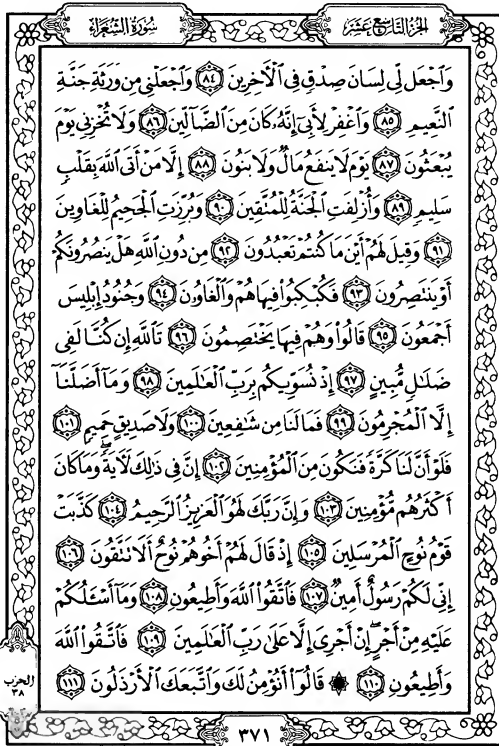 سُورَةُ الشُّعَرَاءِ
الجُزْءُ التَّاسِعَ عَشَرَ
وَٱجْعَل لِّى لِسَانَ صِدْقٍ فِى ٱلْءَاخِرِينَ ٨٤ وَٱجْعَلْنِى مِن وَرَثَةِ جَنَّةِ
ٱلنَّعِيمِ ٨٥ وَٱغْفِرْ لِأَبِىٓ إِنَّهُۥ كَانَ مِنَ ٱلضَّآلِّينَ ٨٦ وَلَا تُخْزِنِى يَوْمَ
يُبْعَثُونَ ٨٧ يَوْمَ لَا يَنفَعُ مَالٌ وَلَا بَنُونَ ٨٨ إِلَّا مَنْ أَتَى ٱللَّهَ بِقَلْبٍ
سَلِيمٍ ٨٩ وَأُزْلِفَتِ ٱلْجَنَّةُ لِلْمُتَّقِينَ ٩٠ وَبُرِّزَتِ ٱلْجَحِيمُ لِلْغَاوِينَ
٩١ وَقِيلَ لَهُمْ أَيْنَ مَا كُنتُمْ تَعْبُدُونَ ٩٢ مِن دُونِ ٱللَّهِ هَلْ يَنصُرُونَكُمْ
أَوْ يَنتَصِرُونَ ٩٣ فَكُبْكِبُوا۟ فِيهَا هُمْ وَٱلْغَاوُۥنَ ٩٤ وَجُنُودُ إِبْلِيسَ
أَجْمَعُونَ ٩٥ قَالُوا۟ وَهُمْ فِيهَا يَخْتَصِمُونَ ٩٦ تَٱللَّهِ إِن كُنَّا لَفِى
ضَلَٰلٍ مُّبِينٍ ٩٧ إِذْ نُسَوِّيكُم بِرَبِّ ٱلْعَٰلَمِينَ ٩٨ وَمَآ أَضَلَّنَآ
إِلَّا ٱلْمُجْرِمُونَ ٩٩ فَمَا لَنَا مِن شَٰفِعِينَ ١٠٠ وَلَا صَدِيقٍ حَمِيمٍ ١٠١
فَلَوْ أَنَّ لَنَا كَرَّةً فَنَكُونَ مِنَ ٱلْمُؤْمِنِينَ ١٠٢ إِنَّ فِى ذَٰلِكَ لَءَايَةً ۖ وَمَا كَانَ
أَكْثَرُهُم مُّؤْمِنِينَ ١٠٣ وَإِنَّ رَبَّكَ لَهُوَ ٱلْعَزِيزُ ٱلرَّحِيمُ ١٠٤ كَذَّبَتْ
قَوْمُ نُوحٍ ٱلْمُرْسَلِينَ ١٠٥ إِذْ قَالَ لَهُمْ أَخُوهُمْ نُوحٌ أَلَا تَتَّقُونَ ١٠٦
إِنِّى لَكُمْ رَسُولٌ أَمِينٌ ١٠٧ فَٱتَّقُوا۟ ٱللَّهَ وَأَطِيعُونِ ١٠٨ وَمَآ أَسْـَٔلُكُمْ
عَلَيْهِ مِنْ أَجْرٍ ۖ إِنْ أَجْرِىَ إِلَّا عَلَىٰ رَبِّ ٱلْعَٰلَمِينَ ١٠٩ فَٱتَّقُوا۟ ٱللَّهَ
وَأَطِيعُونِ ١١٠ ۞ قَالُوٓا۟ أَنُؤْمِنُ لَكَ وَٱتَّبَعَكَ ٱلْأَرْذَلُونَ ١١١
الحزب
٣٨
٣٧١